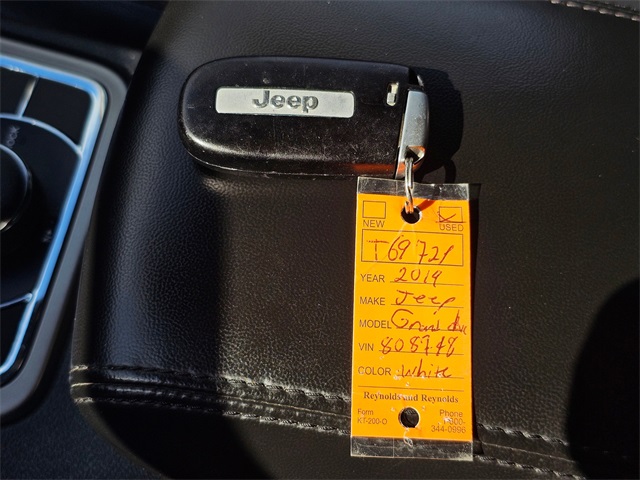 Jeep
NEW USED
T69721
YEAR 2019
MAKE Jeep
MODEL Grand
VIN 808748
COLOR White
Reynolds and Reynolds
Form Phone
KT-200-O 1-800-
344-0996
LOCK